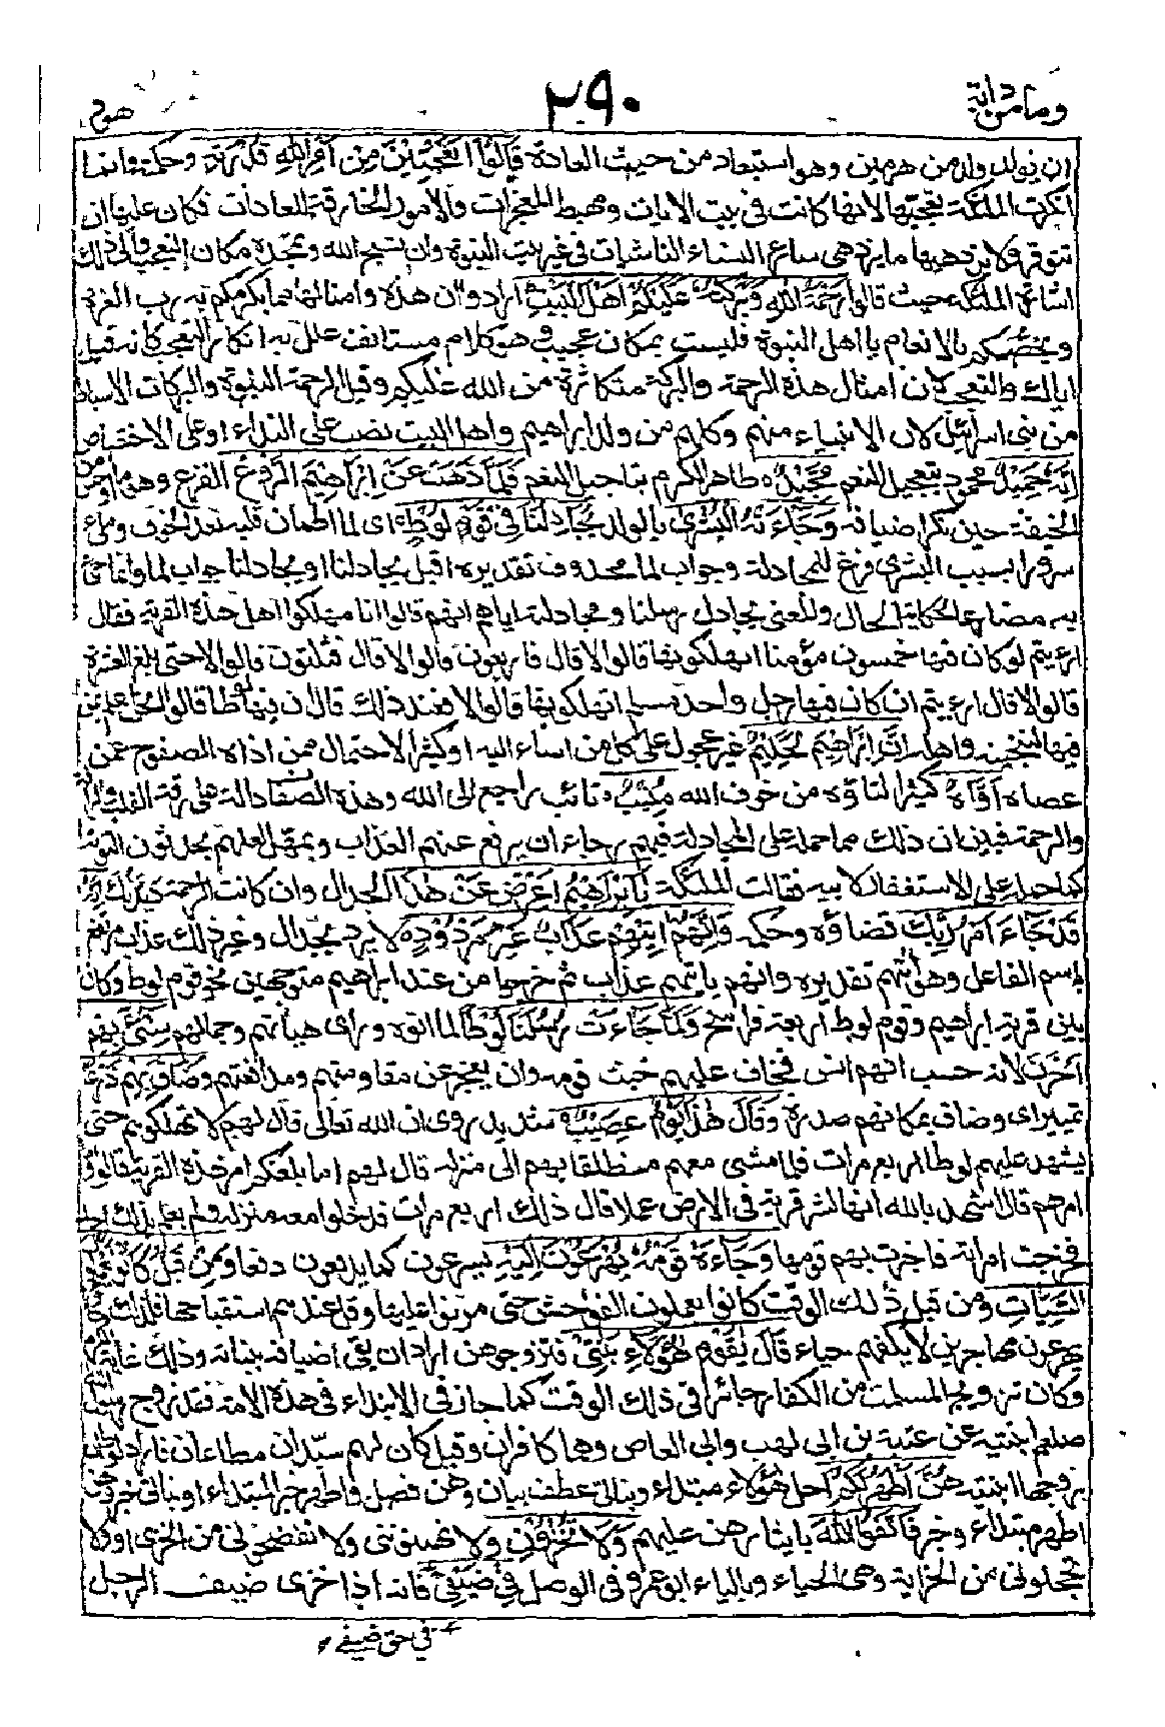 وما من دابة
٢٩٠
هود
ان يولد ولد من هرمين وهو استبعاد من حيث العادة قَالُوْٓا اَتَعْجَبِيْنَ مِنْ اَمْرِ اللّٰهِ قدرته وحكمته وانما
انكرت الملٰئكة تعجبها لانها كانت في بيت الآيات ومهبط المعجزات والامور الخارقة للعادات فكان عليها ان
تتوقر ولا يزدهيها ما يزدهي سائر النساء الناشيات في غير بيت النبوة وان تسبح الله وتمجده مكان التعجب والى ذلك
اشارت الملٰئكة حيث قالوا رَحْمَتُ اللّٰهِ وَبَرَكٰتُهٗ عَلَيْكُمْ اَهْلَ الْبَيْتِ ارادوا ان هذه وامثالها مما يكرمكم به رب العزة
ويخصكم بالانعام يا اهل النبوة فليست بمكان عجيب وهو كلام مستانف علل به انكار التعجب كانه قيل
اياك والتعجب لان امثال هذه الرحمة والبركة متكاثرة من الله عليكم وقيل الرحمة النبوة والبركات الاسباط
من بني اسرائيل لان الانبياء منهم وكلهم من ولد ابراهيم واهل البيت نصب على النداء او على الاختصاص
اِنَّهٗ حَمِيْدٌ محمود بتعجيل النعم مَّجِيْدٌ ظاهر الكرم بتاجيل النقم فَلَمَّا ذَهَبَ عَنْ اِبْرٰهِيْمَ الرَّوْعُ الفزع وهو ما اوجس من
الخيفة حين نكر اضيافه وَجَآءَتْهُ الْبُشْرٰى بالولد يُجَادِلُنَا فِيْ قَوْمِ لُوْطٍ اى لما اطمان قلبه بعد الخوف وملئ
سرورا بسبب البشرى فرغ للمجادلة وجواب لما محذوف تقديره اقبل يجادلنا او يجادلنا جواب لما وانما جئ
به مضارعا لحكاية الحال والمعنى يجادل رسلنا ومجادلته اياهم انهم قالوا انا مهلكوا اهل هذه القرية فقال
ارءيتم لو كان فيها خمسون مؤمنا اتهلكونها قالوا لا قال فاربعون قالوا لا قال فثلثون قالوا لا حتى بلغ العشرة
قالوا لا قال ارءيتم ان كان فيها رجل واحد مسلم اتهلكونها قالوا لا فعند ذلك قال ان فيها لوطا قالوا نحن اعلم بمن
فيها لننجينه واهله اِنَّ اِبْرٰهِيْمَ لَحَلِيْمٌ غير عجول على كل من اساء اليه او كثير الاحتمال ممن اذاه الصفوح عمن
عصاه اَوَّاهٌ كثير التاوه من خوف الله مُّنِيْبٌ تائب راجع الى الله وهذه الصفات دالة على رقة القلب والرأفة
والرحمة فبين ان ذلك مما حمله على المجادلة فيهم رجاء ان يرفع عنهم العذاب ويمهلوا لعلهم يحدثون التوبة
كما حمله على الاستغفار لابيه فقالت الملٰئكة يٰٓاِبْرٰهِيْمُ اَعْرِضْ عَنْ هٰذَا الجدال وان كانت الرحمة ديدنك اِنَّهٗ
قَدْ جَآءَ اَمْرُ رَبِّكَ قضاؤه وحكمه وَاِنَّهُمْ اٰتِيْهِمْ عَذَابٌ غَيْرُ مَرْدُوْدٍ لا يرد بجدال وغير ذلك عذاب مرتفع
باسم الفاعل وهو اتيهم تقديره وانهم ياتيهم عذاب ثم خرجوا من عند ابراهيم متوجهين نحو قوم لوط وكان
بين قرية ابراهيم وقوم لوط اربعة فراسخ وَلَمَّا جَآءَتْ رُسُلُنَا لُوْطًا لما اتوه وراى هيأتهم وجمالهم سِيْٓءَ بِهِمْ
احزن لانه حسب انهم انس فخاف عليهم خبث قومه وان يعجز عن مقاومتهم ومدافعتهم وَضَاقَ بِهِمْ ذَرْعًا
تمييز اى وضاق بمكانهم صدره وَقَالَ هٰذَا يَوْمٌ عَصِيْبٌ شديد روى ان الله تعالى قال لهم لا تهلكوهم حتى
يشهد عليهم لوط اربع مرات فلما مشى معهم منطلقا بهم الى منزله قال لهم اما بلغكم امر هذه القرية قالوا وما
امرهم قال اشهد بالله انها لشر قرية في الارض عملا قال ذلك اربع مرات فدخلوا معه منزله ولم يعلم بذلك احد
فخرجت امراته فاخبرت بهم قومها وَجَآءَهٗ قَوْمُهٗ يُهْرَعُوْنَ اِلَيْهِ يسرعون كما يدفعون دفعا وَمِنْ قَبْلُ كَانُوْا يَعْمَلُوْنَ
السَّيِّاٰتِ ومن قبل ذلك الوقت كانوا يعملون الفواحش حتى مرنوا عليها وقل عندهم استقباحها فلذلك جاءوا
يهرعون مجاهرين لا يكفهم حياء قَالَ يٰقَوْمِ هٰٓؤُلَآءِ بَنَاتِيْ فتزوجوهن اراد ان يقى اضيافه ببناته وذلك غاية الكرم
وكان تزويج المسلمات من الكفار جائزا في ذلك الوقت كما جاز في الابتداء في هذه الامة فقد زوج رسول الله
صلعم ابنتيه من عتبة بن ابي لهب وابي العاص وهما كافران وقيل كان لهم سيدان مطاعان فاراد لوط ان
يزوجهما ابنتيه هُنَّ اَطْهَرُ لَكُمْ احل هؤلاء مبتداء وبناتي عطف بيان وهن فصل واطهر خبر المبتداء او بناتي خبر وهن
اطهر مبتداء وخبر فَاتَّقُوا اللّٰهَ بايثارهن عليهم وَلَا تُخْزُوْنِ ولا تهينوني ولا تفضحوني من الخزى او ولا
تخجلوني من الخزاية وهى الحياء وبالياء ابو عمرو في الوصل فِيْ ضَيْفِيْ فانه اذا خزى ضيف الرجل
في حق ضيفي